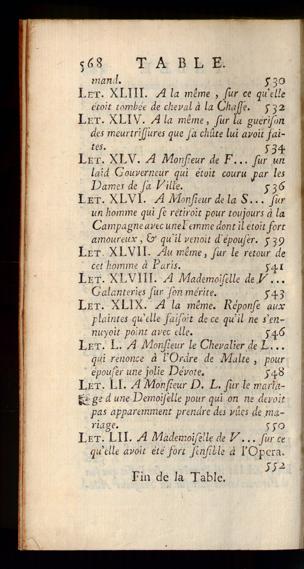 568 TABLE.
mand. 530
LET. XLIII. A la même, ſur ce qu'elle
étoit tombée de cheval à la Chaſſe. 532
LET. XLIV. A la même, ſur la gueriſon
des meurtriſſures que ſa chûte lui avoit fai-
tes. 534
LET. XLV. A Monſieur de F... ſur un
laid Gouverneur qui étoit couru par les
Dames de ſa Ville. 536
LET. XLVI. A Monſieur de la S... ſur
un homme qui ſe retiroit pour toujours à la
Campagne avec une Femme dont il étoit fort
amoureux, & qu'il venoit d'épouſer. 539
LET. XLVII. Au même, ſur le retour de
cet homme à Paris. 541
LET. XLVIII. A Mademoiſelle de V...
Galanteries ſur ſon mérite. 543
LET. XLIX. A la même. Réponſe aux
plaintes qu'elle faiſoit de ce qu'il ne s'en-
nuyoit point avec elle. 546
LET. L. A Monſieur le Chevalier de L...
qui renonce à l'Ordre de Malte, pour
épouſer une jolie Dévote. 548
LET. LI. A Monſieur D. L. ſur le maria-
ge d'une Demoiſelle pour qui on ne devoit
pas apparemment prendre des vûes de ma-
riage. 550
LET. LII. A Mademoiſelle de V... ſur ce
qu'elle avoit été fort ſenſible à l'Opera.
552
Fin de la Table.